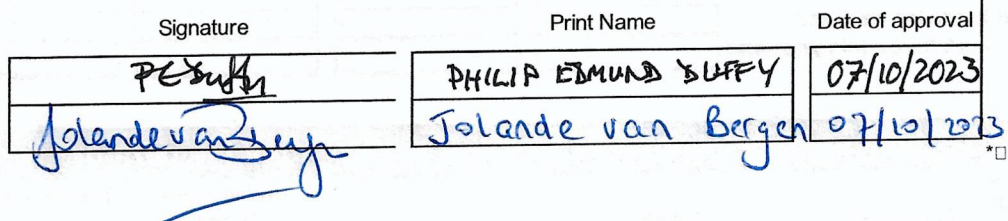 Signature Print Name Date of approval
PEDuffy PHILIP EDMUND DUFFY 07/10/2023
Jolande van Bergen Jolande van Bergen 07/10/2023
*□